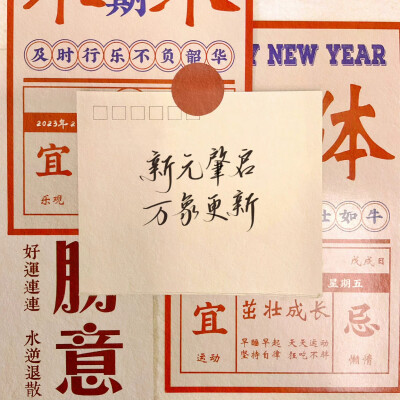 期
及时行乐不负韶华
Y NEW YEAR
2023年2
宜
乐观
新元肇启
万象更新
体
壮如牛
戊戌日
星期五
宜
运动
茁壮成长
早睡早起 天天运动
坚持自律 狂吃不胖
忌
懒惰
好運連連
水逆退散
勝意